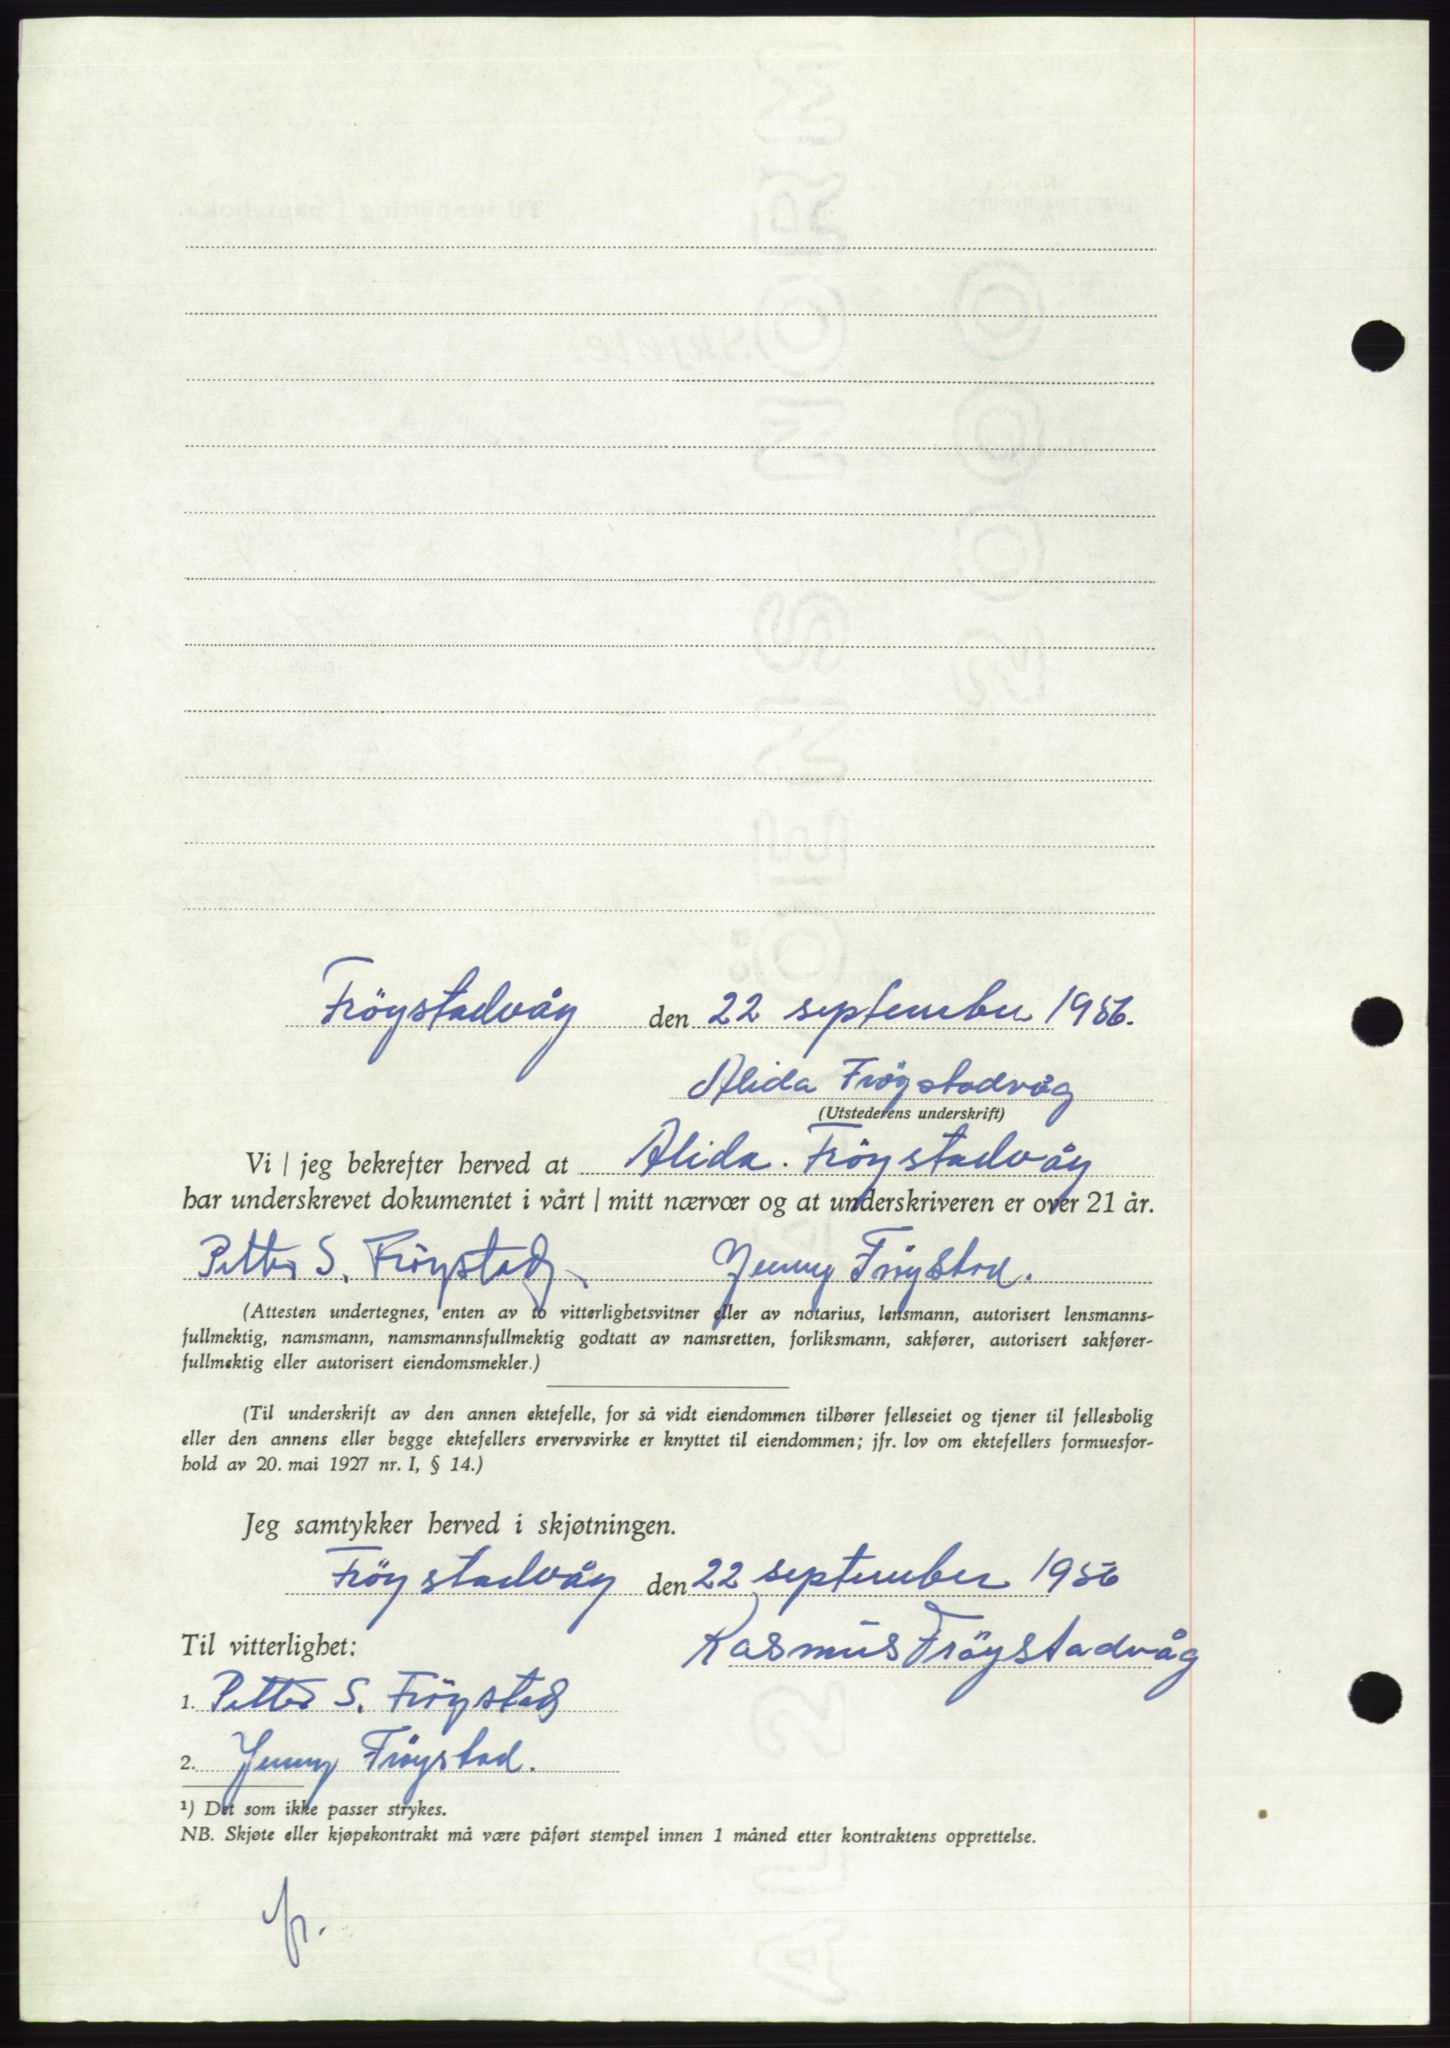 Fröystadvåg den 22 september 1956.
Alida Fröystadvåg
(Utstederens underskrift)
Vi / jeg bekrefter herved at Alida. Fröystadvåg
har underskrevet dokumentet i vårt / mitt nærvær og at underskriveren er over 21 år.
Petter S. Fröystad. Jenny Fröystad.
(Attesten undertegnes, enten av to vitterlighetsvitner eller av notarius, lensmann, autorisert lensmanns-
fullmektig, namsmann, namsmannsfullmektig godtatt av namsretten, forliksmann, sakfører, autorisert sakfører-
fullmektig eller autorisert eiendomsmekler.)
(Til underskrift av den annen ektefelle, for så vidt eiendommen tilhører felleseiet og tjener til fellesbolig
eller den annens eller begge ektefellers ervervsvirke er knyttet til eiendommen; jfr. lov om ektefellers formuesfor-
hold av 20. mai 1927 nr. I, § 14.)
Jeg samtykker herved i skjøtningen.
Fröystadvåg den 22 september 1956
Til vitterlighet:
Rasmus Fröystadvåg
1. Petter S. Fröystad
2. Jenny Fröystad.
¹) Det som ikke passer strykes.
NB. Skjøte eller kjøpekontrakt må være påført stempel innen 1 måned etter kontraktens opprettelse.